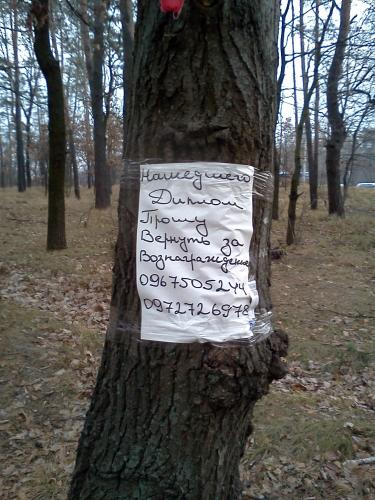 Нашедшего
Диплом
Прошу
Вернуть за
Вознаграждение
0967505244
0972726978